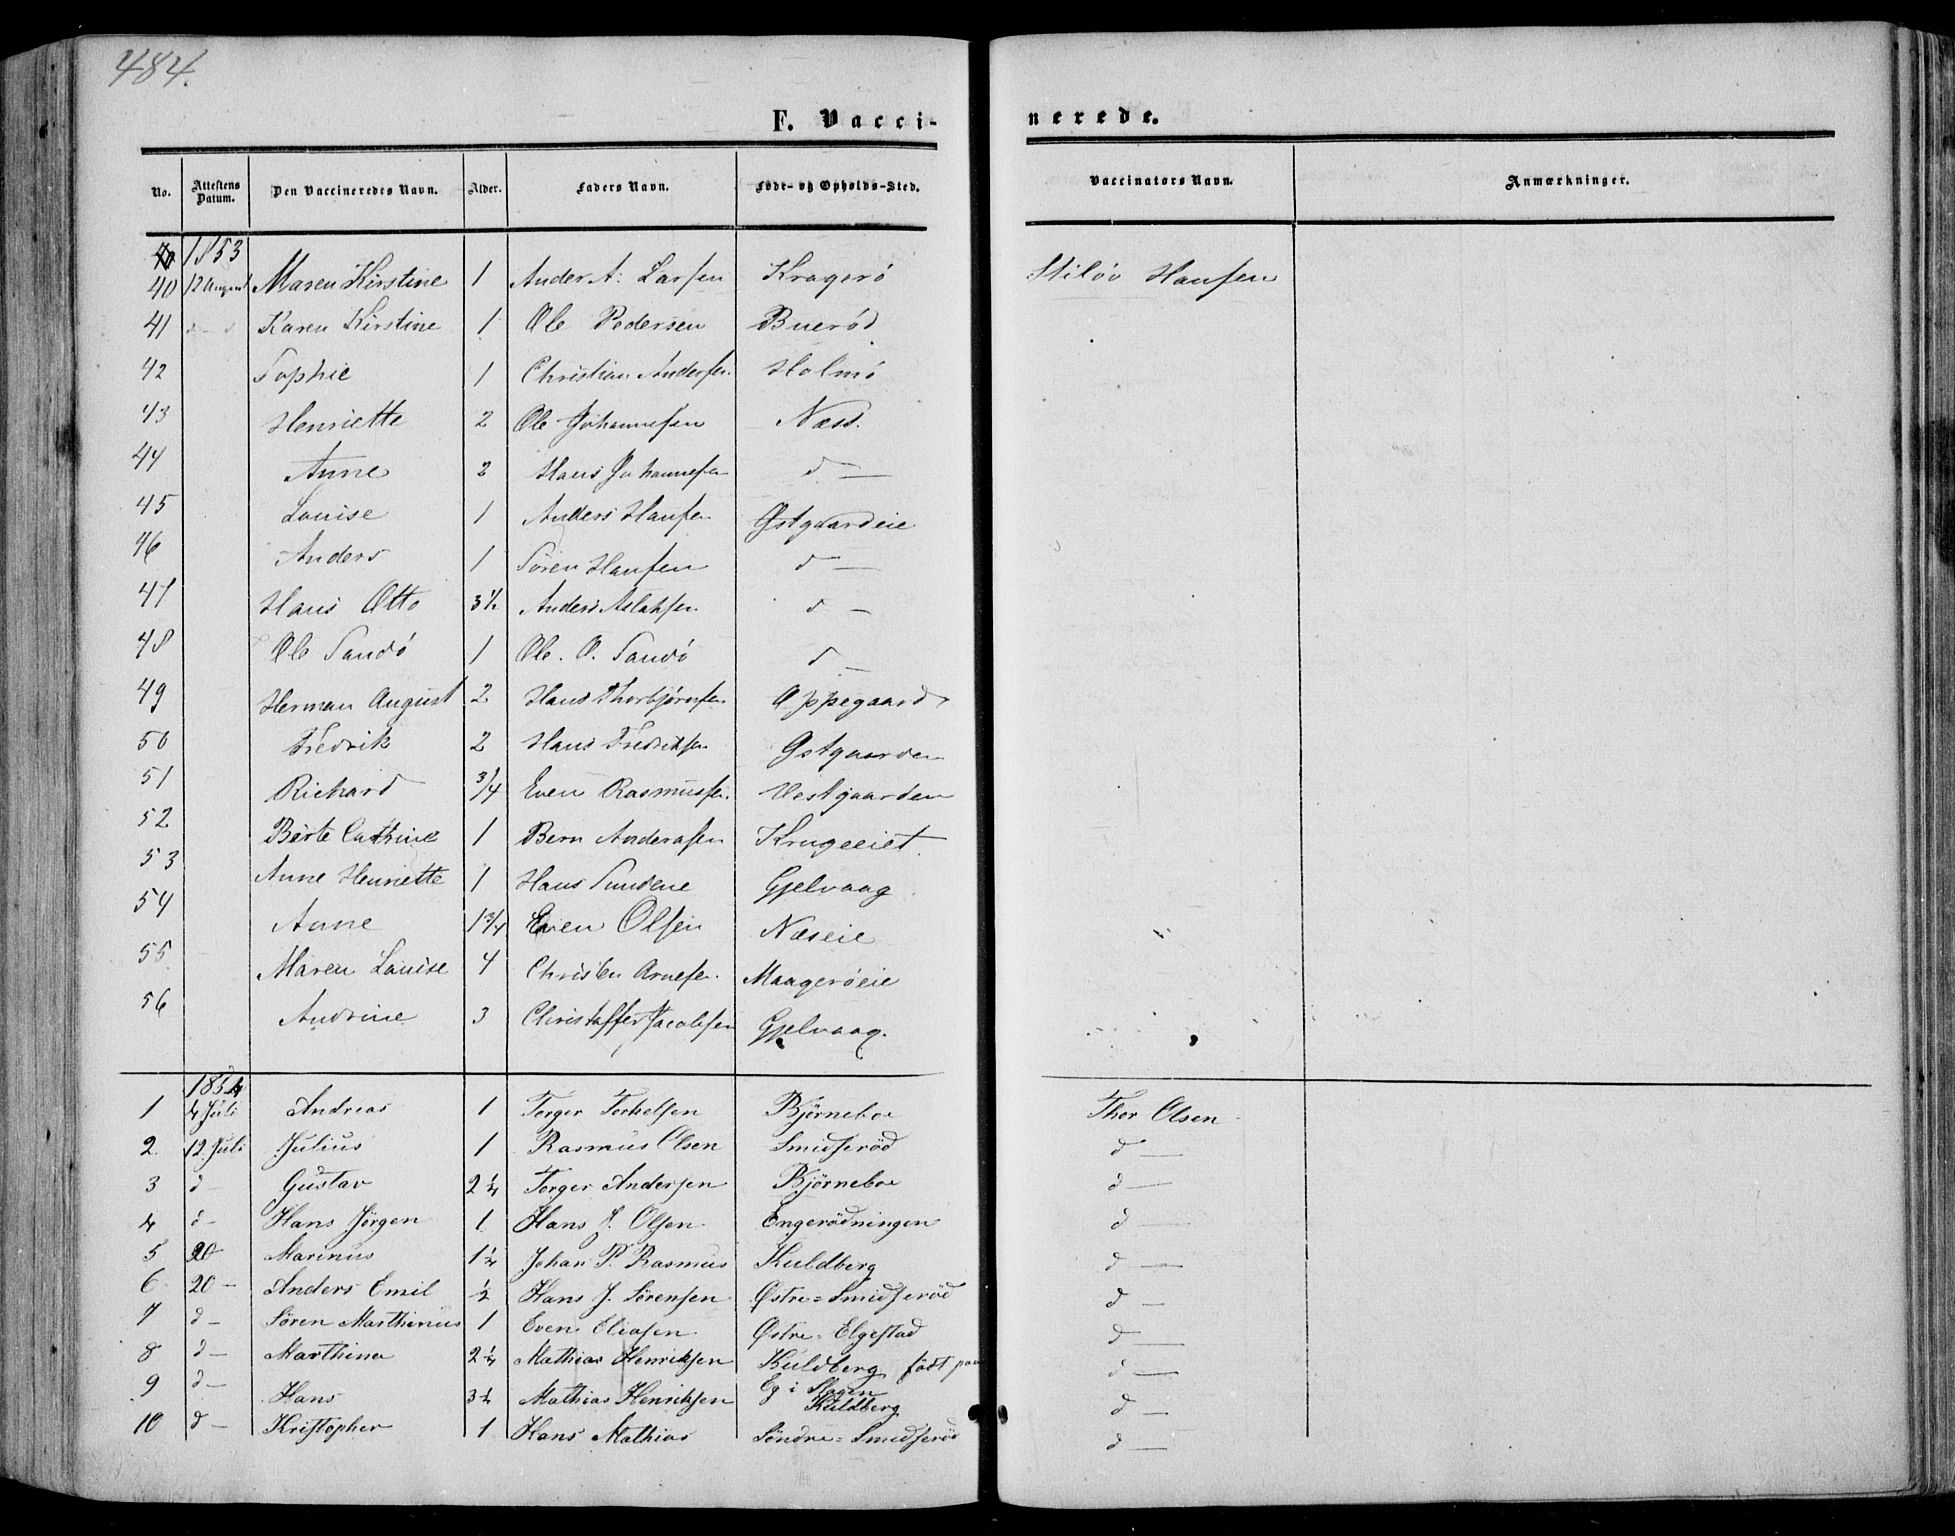 484.
F. Vacci-
nerede.
No. Attestens Datum. Den Vaccineredes Navn. Alder. Faders Navn. Føde- og Opholds-Sted. Vaccinatørs Navn. Anmærkninger.
1853
40 12 August Maren Kirstine 1 Ander A. Larsen Kragerö Stiløv Hansen
41 d - d Karen Kirstine 1 Ole Pedersen Bueröd
42 Sophie 1 Christian Andersen Holmö
43 Henriette 2 Ole Johannesen Næss.
44 Anne 2 Hans Johannesen d —
45 Louise 1 Anders Hansen Østgaardeie
46 Anders 1 Sören Hansen d —
47 Hans Otto 3½ Anders Aslaksen d —
48 Ole Sandö 1 Ole. O. Sandö d —
49 Herman August 2 Hans Thorbjørnsen Oppegaard
50 Fredrik 2 Hans Fredriksen Østgaarden
51 Richard 3/4 Even Rasmussen Vestgaarden
52 Berte Cathrine 1 Bern Andersen Krugeeiet.
53 Anne Henriette 1 Hans Sundene Gjelvaag
54 Anne 1 3/4 Even Olsen Næseie
55. Maren Louise 4 Christen Arnesen. Maagerøeie
56 Andrine 3 Christoffer Jacobsen Gjelvaag.
1854
1 4 Juli Andreas 1 Torger Torkelsen Björneboe Thor Olsen
2. 12. Juli Julius 1 Rasmus Olsen Smidseröd d —
3 d - Gustav 2¼ Torger Andersen Björneboe d —
4 d - Hans Jörgen 1 Hans J. Olsen Engerödningen d —
5 20 Marinus 1¼ Johan P. Rasmus Kuldberg d —
6 20 - Anders Emil ½ Hans J. Sörensen Østre=Smidseröd d —
7 d - Sören Marthinus 1 Even Eliasen Østre=Elgestad d —
8 d - Marthina 2¼ Mathias Henriksen Kuldberg födt paa d —
Eg i Slagen
9 d - Hans 3½ Mathias Henriksen Kuldberg d —
10 d - Kristopher 1 Hans Mathias Söndre=Smidseröd d —